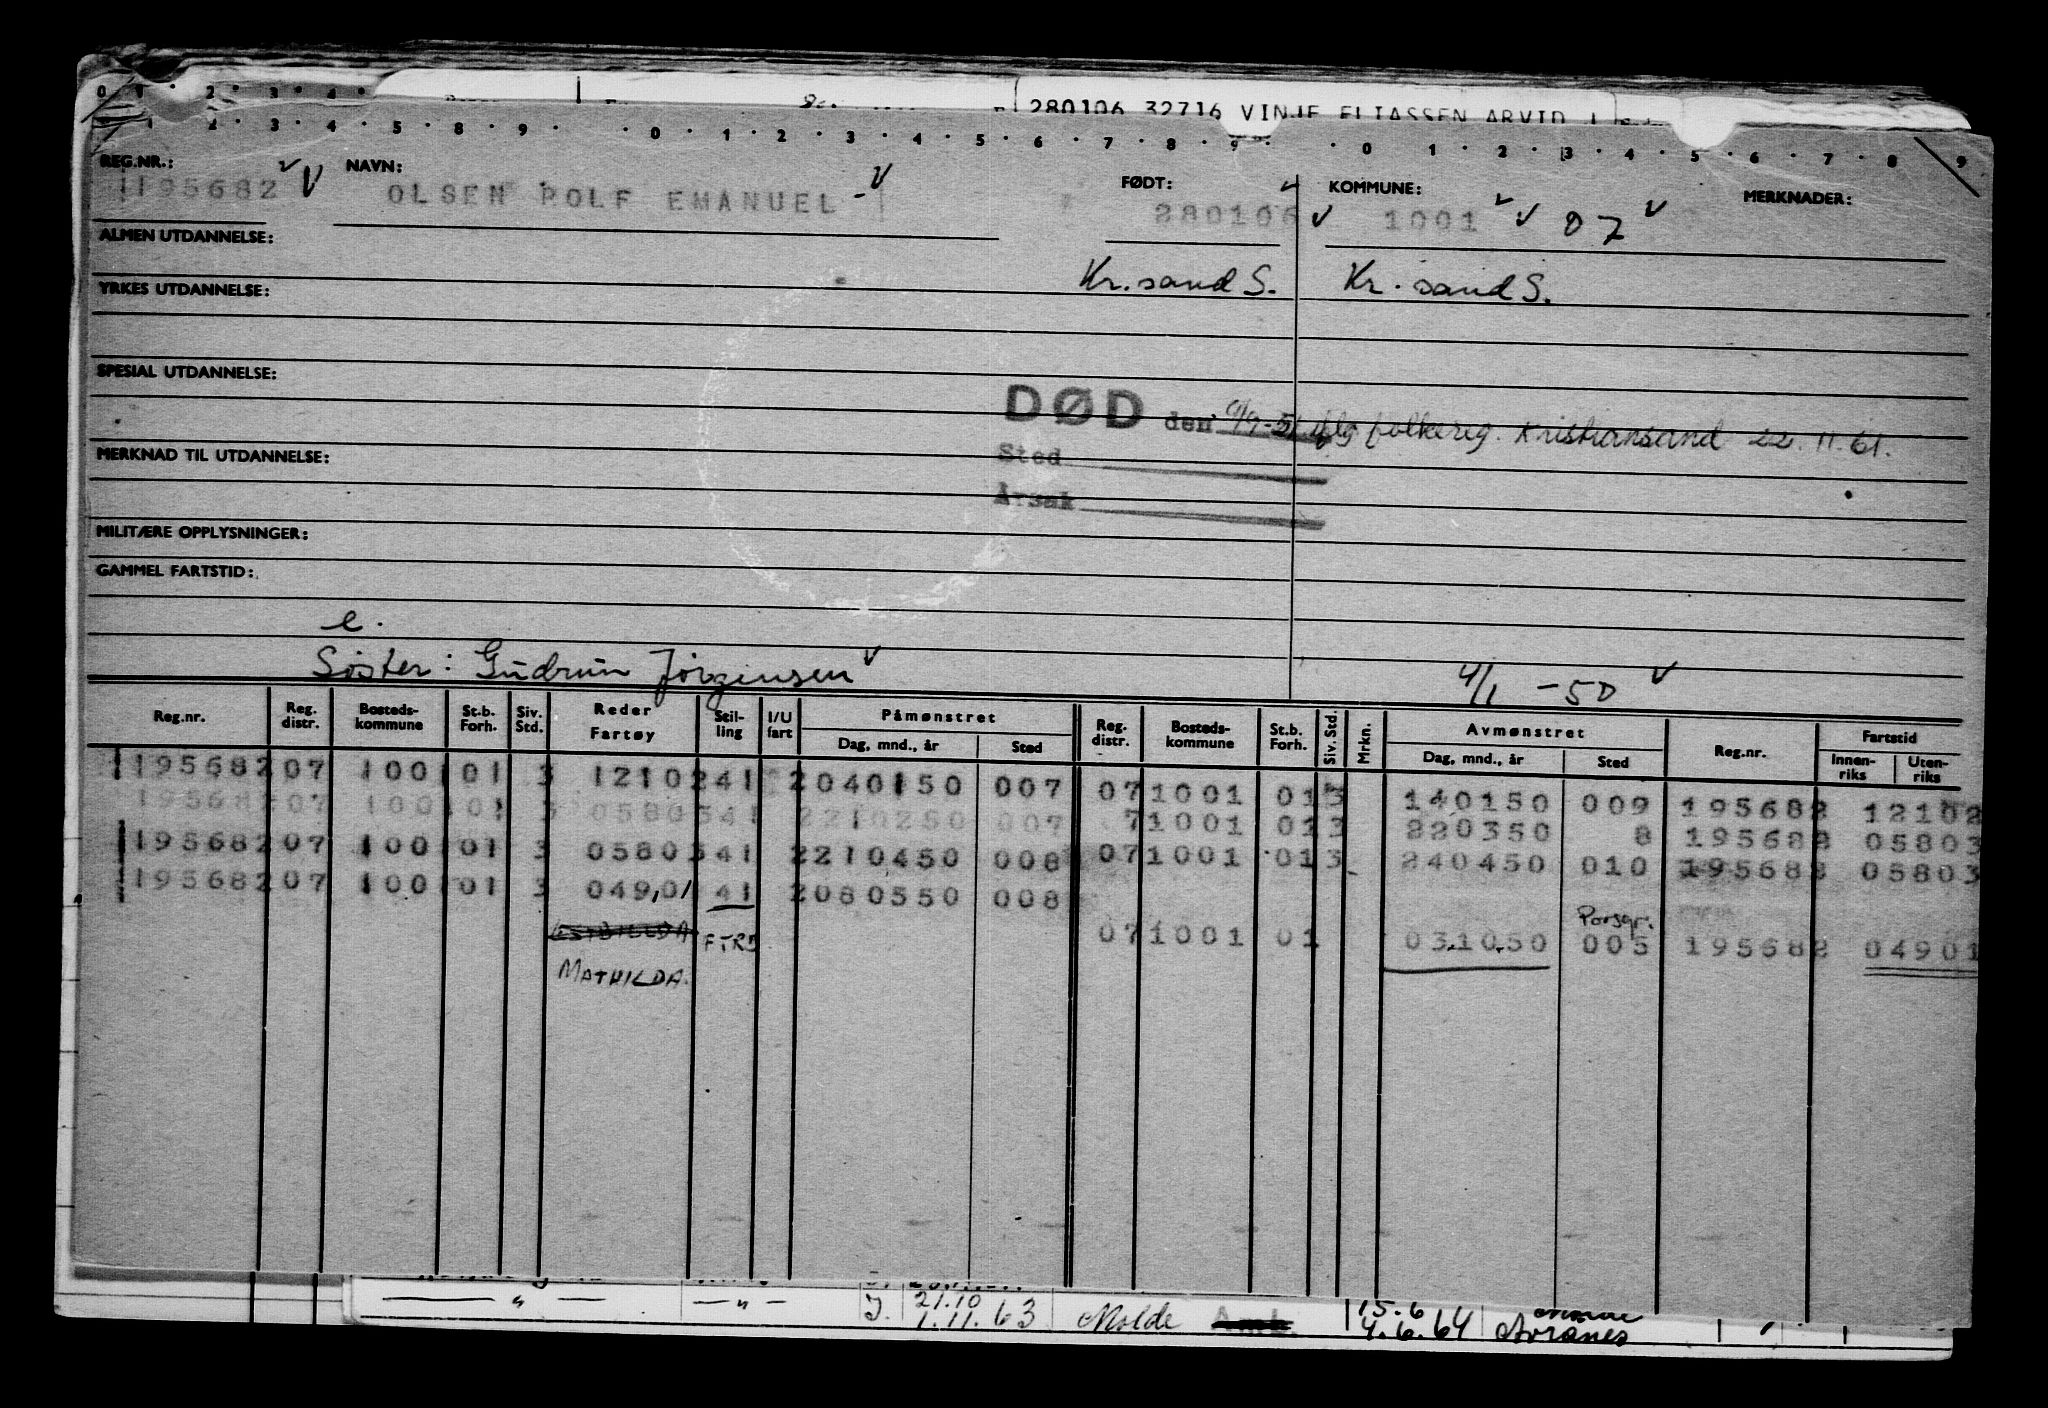 280106 32716 VINJE ELIASSEN ARVID
REG.NR.: NAVN: FØDT: KOMMUNE: MERKNADER:
195682 OLSEN ROLF EMANUEL 280106 1001 07
ALMEN UTDANNELSE:
Kr.sand S. Kr. sand S.
YRKES UTDANNELSE:
SPESIAL UTDANNELSE:
DØD den 9/9-51 iflg folkereg. Kristiansand 22.11.61.
MERKNAD TIL UTDANNELSE: Sted
Årsak
MILITÆRE OPPLYSNINGER:
GAMMEL FARTSTID:
e.
Søster: Gudrun Jörgensen 4/1 -50
Reg.nr. Reg. distr. Bosteds- kommune St.b. Forh. Siv. Std. Reder Fartøy Stil- ling I/U fart Påmønstret Dag, mnd., år Sted Reg. distr. Bosteds- kommune St.b. Forh. Siv. Std. Mrkn. Avmønstret Dag, mnd., år Sted Reg.nr. Fartstid Innen- riks Uten- riks
195682 07 1001 01 3 12102 41 2 040150 007 07 1001 01 3 140150 009 195682 12102
195682 07 1001 01 3 05803 41 2 210250 007 7 1001 01 3 220350 8 195682 05803
195682 07 1001 01 3 05803 41 2 210450 008 07 1001 01 3 240450 010 195682 05803
195682 07 1001 01 3 04901 41 2 080550 008
Porsgr.
FTRD 07 1001 01 031050 005 195682 04901
MATHILDA.
— " — — " — J. 21.10 15.6
1.11.63 Molde 4.6.64